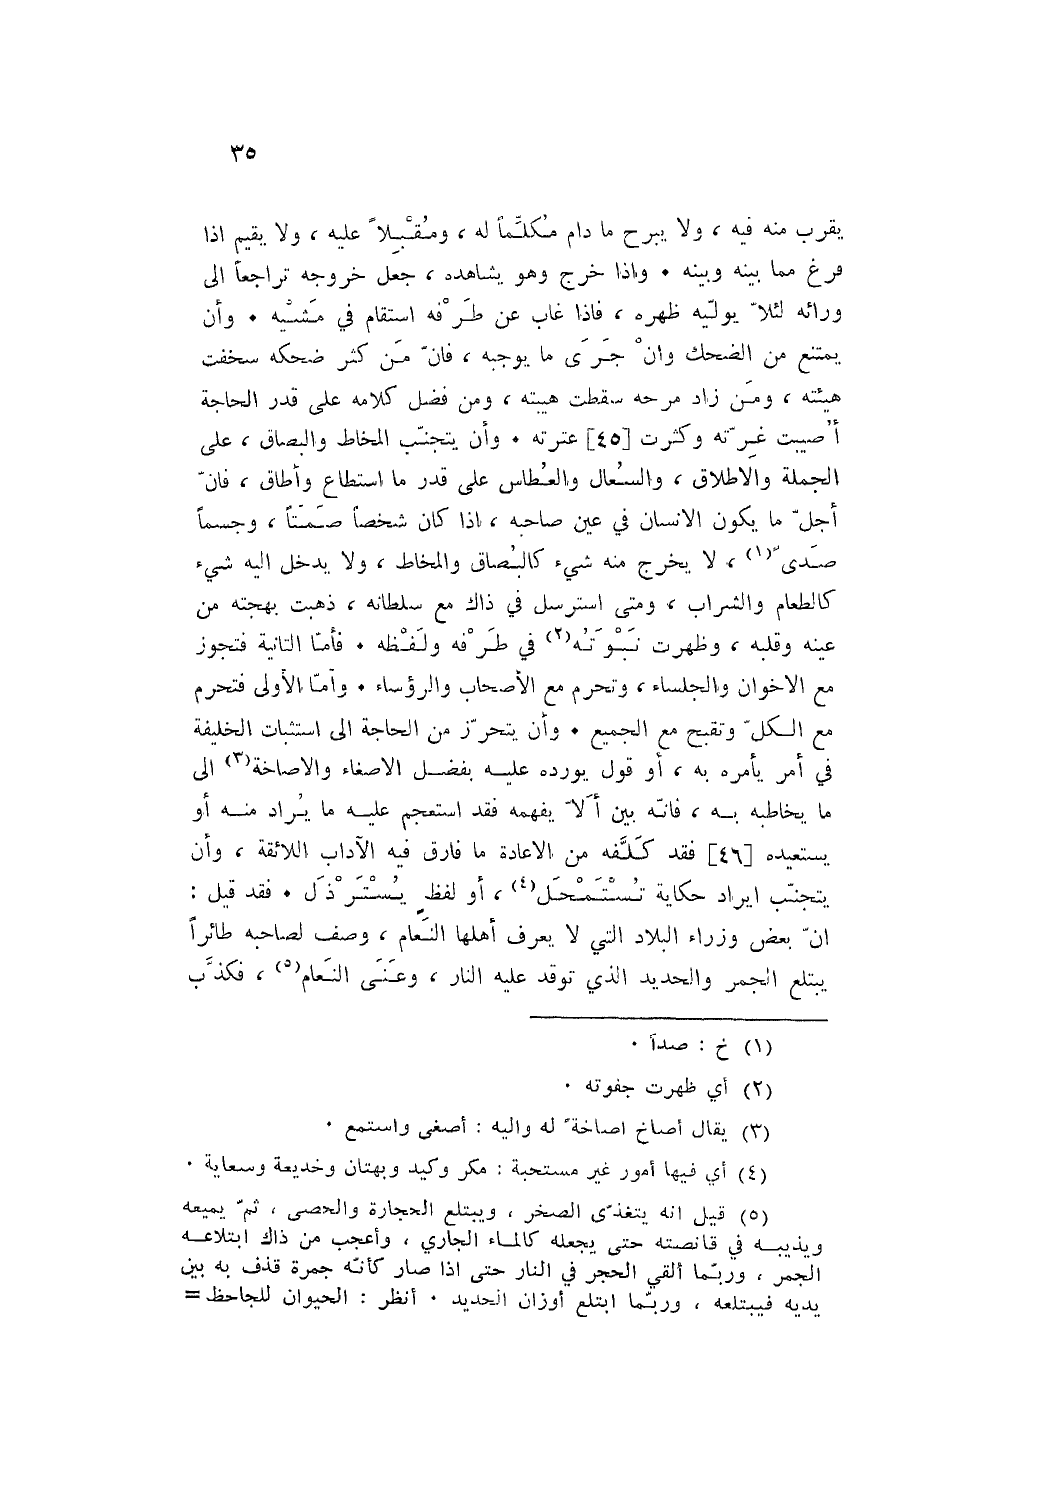 ٣٥
يقرب منه فيه ، ولا يبرح ما دام مُكلِّماً له ، ومُقْبِلاً عليه ، ولا يقيم اذا
فرغ مما بينه وبينه • واذا خرج وهو يشاهده ، جعل خروجه تراجعاً الى
ورائه لئلاّ يولّيه ظهره ، فاذا غاب عن طَرْفه استقام في مَشْيه • وأن
يمتنع من الضحك وانْ جَرَى ما يوجبه ، فانّ مَن كثر ضحكه سخفت
هيئته ، ومَن زاد مرحه سقطت هيبته ، ومن فضل كلامه على قدر الحاجة
أُصيبت غِرّته وكثرت [٤٥] عثرته • وأن يتجنّب المخاط والبصاق ، على
الجملة والاطلاق ، والسُعال والعُطاس على قدر ما استطاع وأطاق ، فانّ
أجلّ ما يكون الانسان في عين صاحبه ، اذا كان شخصاً صَمَتاً ، وجسماً
صَدىّ(١) ، لا يخرج منه شيء كالبُصاق والمخاط ، ولا يدخل اليه شيء
كالطعام والشراب ، ومتى استرسل في ذاك مع سلطانه ، ذهبت بهجته من
عينه وقلبه ، وظهرت نَبْوَتُه(٢) في طَرْفه ولَفْظه • فأمّا الثانية فتجوز
مع الاخوان والجلساء ، وتحرم مع الأصحاب والرؤساء • وأمّا الأولى فتحرم
مع الكلّ وتقبح مع الجميع • وأن يتحرّز من الحاجة الى استثبات الخليفة
في أمر يأمره به ، أو قول يورده عليه بفضل الاصغاء والاصاخة(٣) الى
ما يخاطبه به ، فانّه بين ألاّ يفهمه فقد استعجم عليه ما يُراد منه أو
يستعيده [٤٦] فقد كَلَّفه من الاعادة ما فارق فيه الآداب اللائقة ، وأن
يتجنّب ايراد حكاية تُسْتَمْحَل(٤) ، أو لفظٍ يُسْتَرْذَل • فقد قيل :
انّ بعض وزراء البلاد التي لا يعرف أهلها النَعام ، وصف لصاحبه طائراً
يبتلع الجمر والحديد الذي توقد عليه النار ، وعَنَى النَعام(٥) ، فكذَّب
(١) خ : صدآ •
(٢) أي ظهرت جفوته •
(٣) يقال أصاخ اصاخةً له واليه : أصغى واستمع •
(٤) أي فيها أمور غير مستحبة : مكر وكيد وبهتان وخديعة وسعاية •
(٥) قيل انه يتغذّى الصخر ، ويبتلع الحجارة والحصى ، ثمّ يميعه
ويذيبه في قانصته حتى يجعله كالماء الجاري ، وأعجب من ذاك ابتلاعه
الجمر ، وربّما ألقي الحجر في النار حتى اذا صار كأنّه جمرة قذف به بين
يديه فيبتلعه ، وربّما ابتلع أوزان الحديد • أنظر : الحيوان للجاحظ =